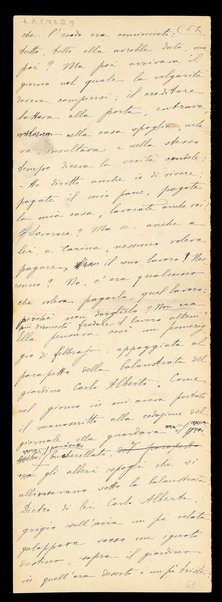 A.R.C 75. I 9
che l'esodo era cominciato! 62
tutto, tutto ella avrebbe dato, ma
poi? Ma poi arrivava il
giorno nel quale la volgarità
doveva compiersi: il creditore
batteva alla porta, entrava
nella casa spoglia, urla
va, insultava e nello stesso
tempo diceva la verità
- Ho diritto anche io di vivere:
pagate il mio pane, pagate
la mia casa, lavorate anche voi!
Lavorare? Ma se anche a
lei, a Carina, nessuno voleva
pagare il suo lavoro! Nes
suno? No, c'era qualcuno
che voleva pagarlo, quel lavoro:
perché non darglielo? Non era
più disonesto frodare il lavoro altrui?
Ella pensava così un pomerig
gio di febbraio, appoggiata al
parapetto della balaustrata del
giardino Carlo Alberto. Come
nel giorno in cui aveva portato
il manoscritto alla redazione del
giornale ella guardava il
gli alberi spogli che si
allineavano sotto la balaustrata
Dietro di lei Carlo Alberto,
grigio sull'aria un po' velata
galoppava verso un ignoto
destino, sopra il giardino
in quell'ora deserto e un po' triste.